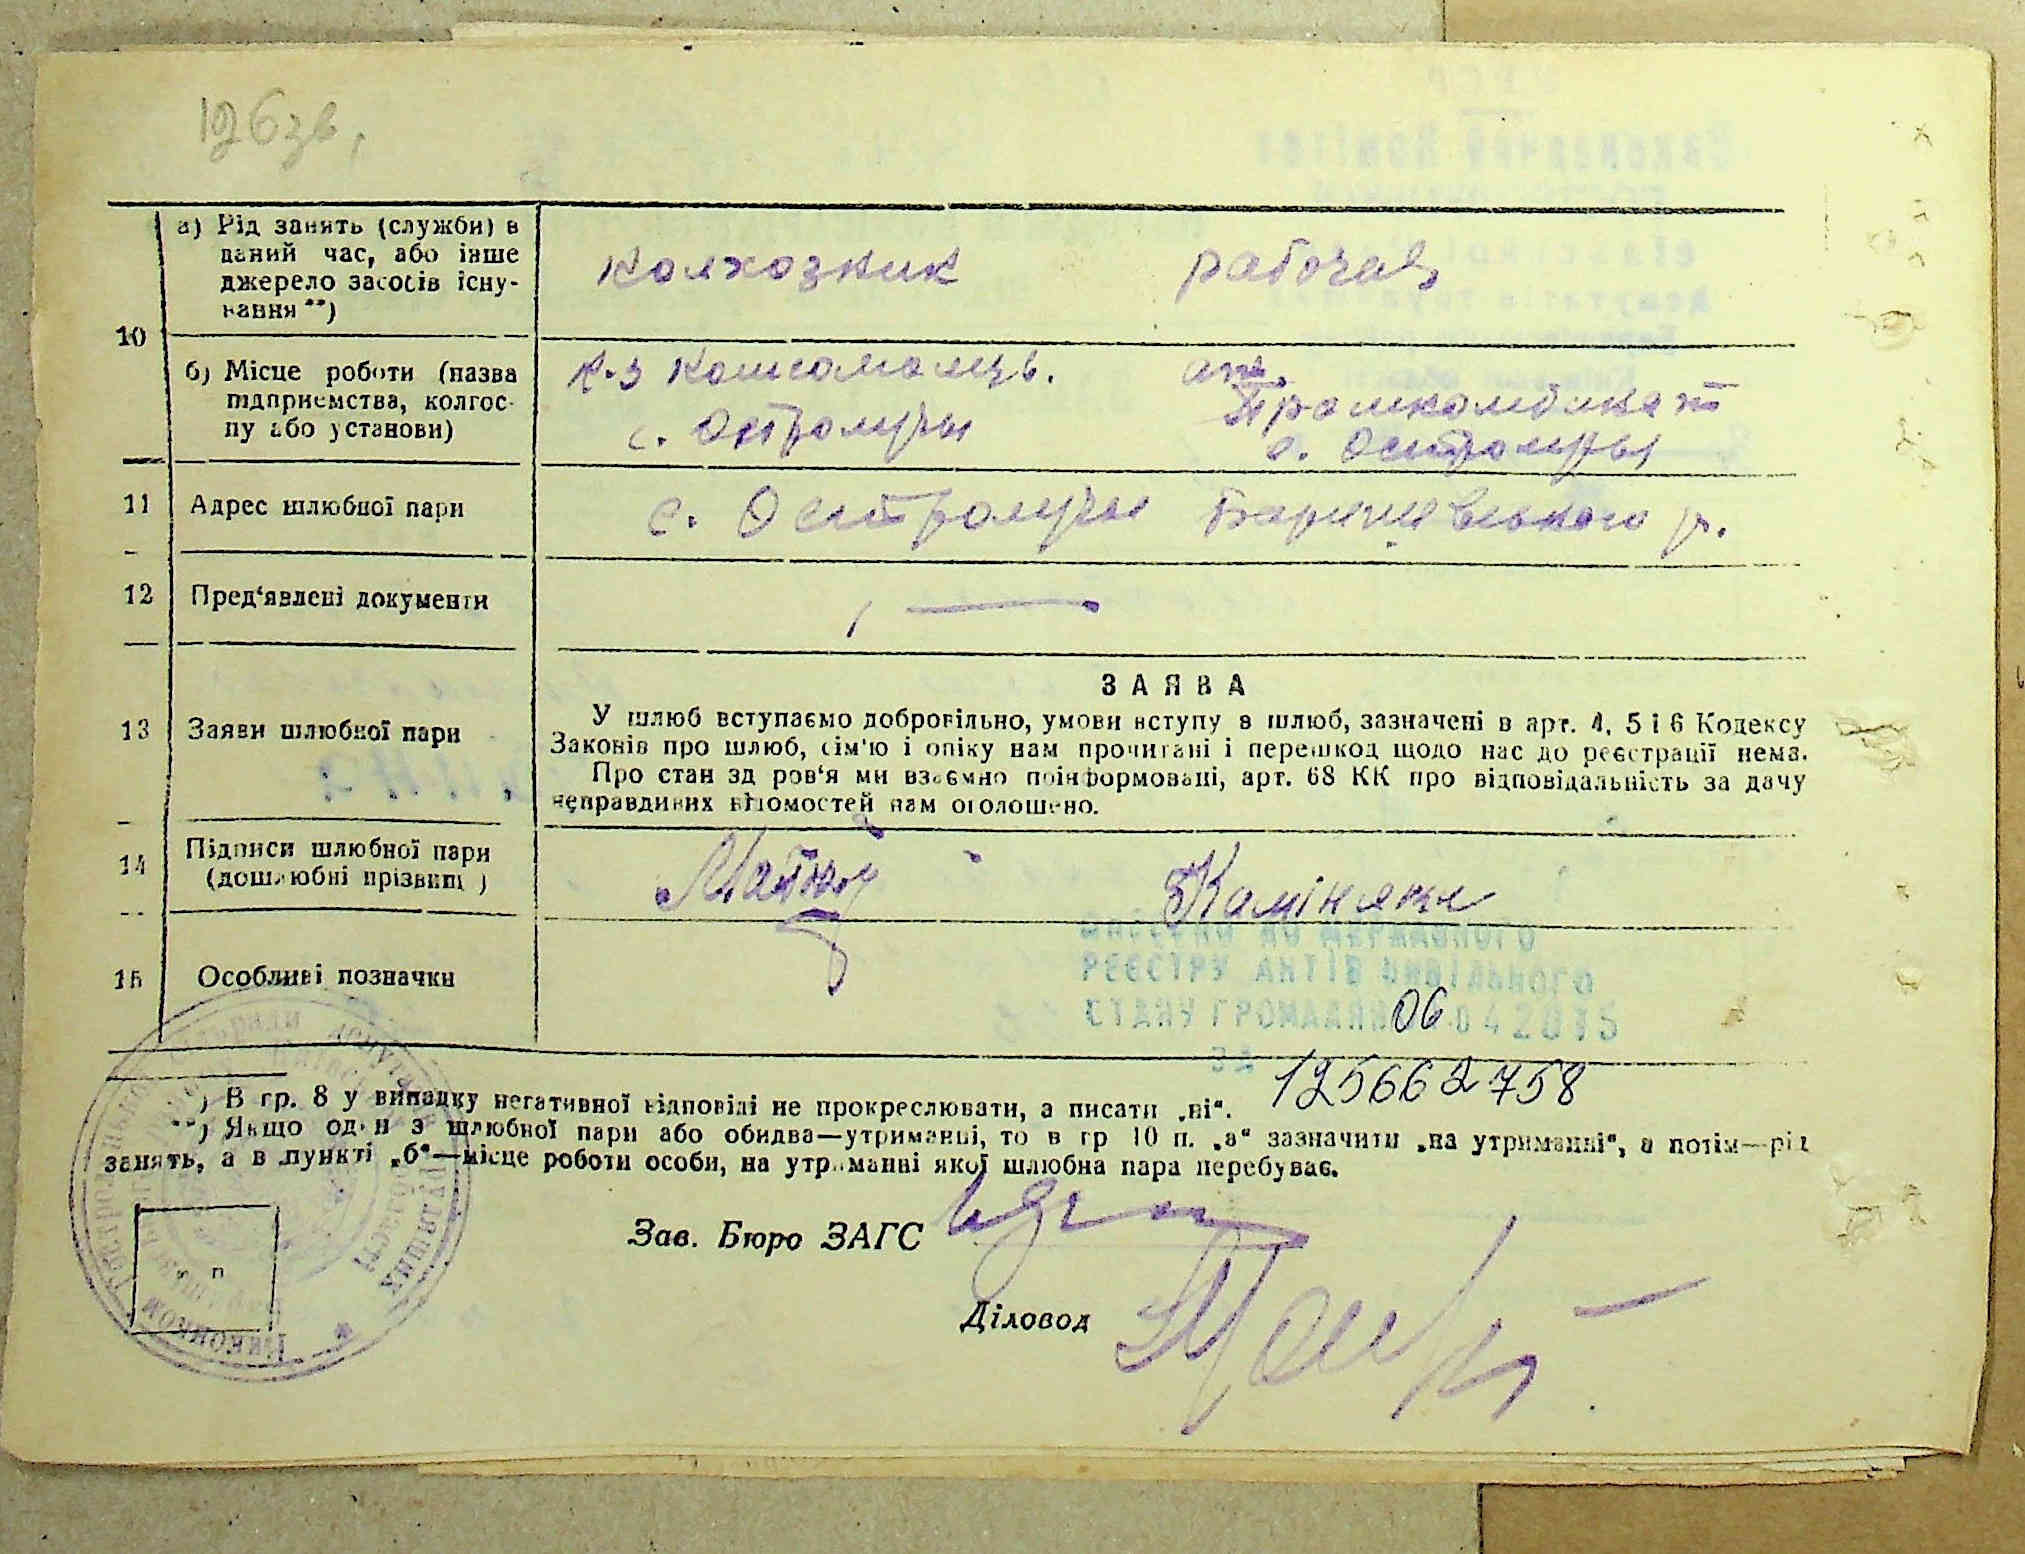 126зв.
10
а) Рід занять (служби) в
даний час, або інше
джерело засобів існу-
вання **)
колхозник рабочая
б) Місце роботи (назва
підприємства, колгос-
пу або установи)
к-з Комсомолець.
с. Остролучы
Промкомбинат
с. Остролучы
11 Адрес шлюбної пари
с. Остролучы Баришевського р.
12 Пред'явлені документи
13 Заяви шлюбної пари
ЗАЯВА
У шлюб вступаємо добровільно, умови вступу в шлюб, зазначені в арт. 4, 5 і 6 Кодексу
Законів про шлюб, сім'ю і опіку нам прочитані і перешкод щодо нас до реєстрації нема.
Про стан здоров'я ми взаємно поінформовані, арт. 68 КК про відповідальність за дачу
неправдивих відомостей нам оголошено.
14 Підписи шлюбної пари
(дошлюбні прізвища)
15 Особливі позначки
ВНЕСЕНО ДО ДЕРЖАВНОГО
РЕЄСТРУ АКТІВ ЦИВІЛЬНОГО
СТАНУ ГРОМАДЯН 06.042015
ЗА 125662758
*) В гр. 8 у випадку негативної відповіді не прокреслювати, а писати „ні“.
**) Якщо один з шлюбної пари або обидва—утриманці, то в гр 10 п. „а“ зазначити „на утриманні“, а потім—рід
занять, а в пункті „б“—місце роботи особи, на утриманні якої шлюбна пара перебуває.
Зав. Бюро ЗАГС
Діловод